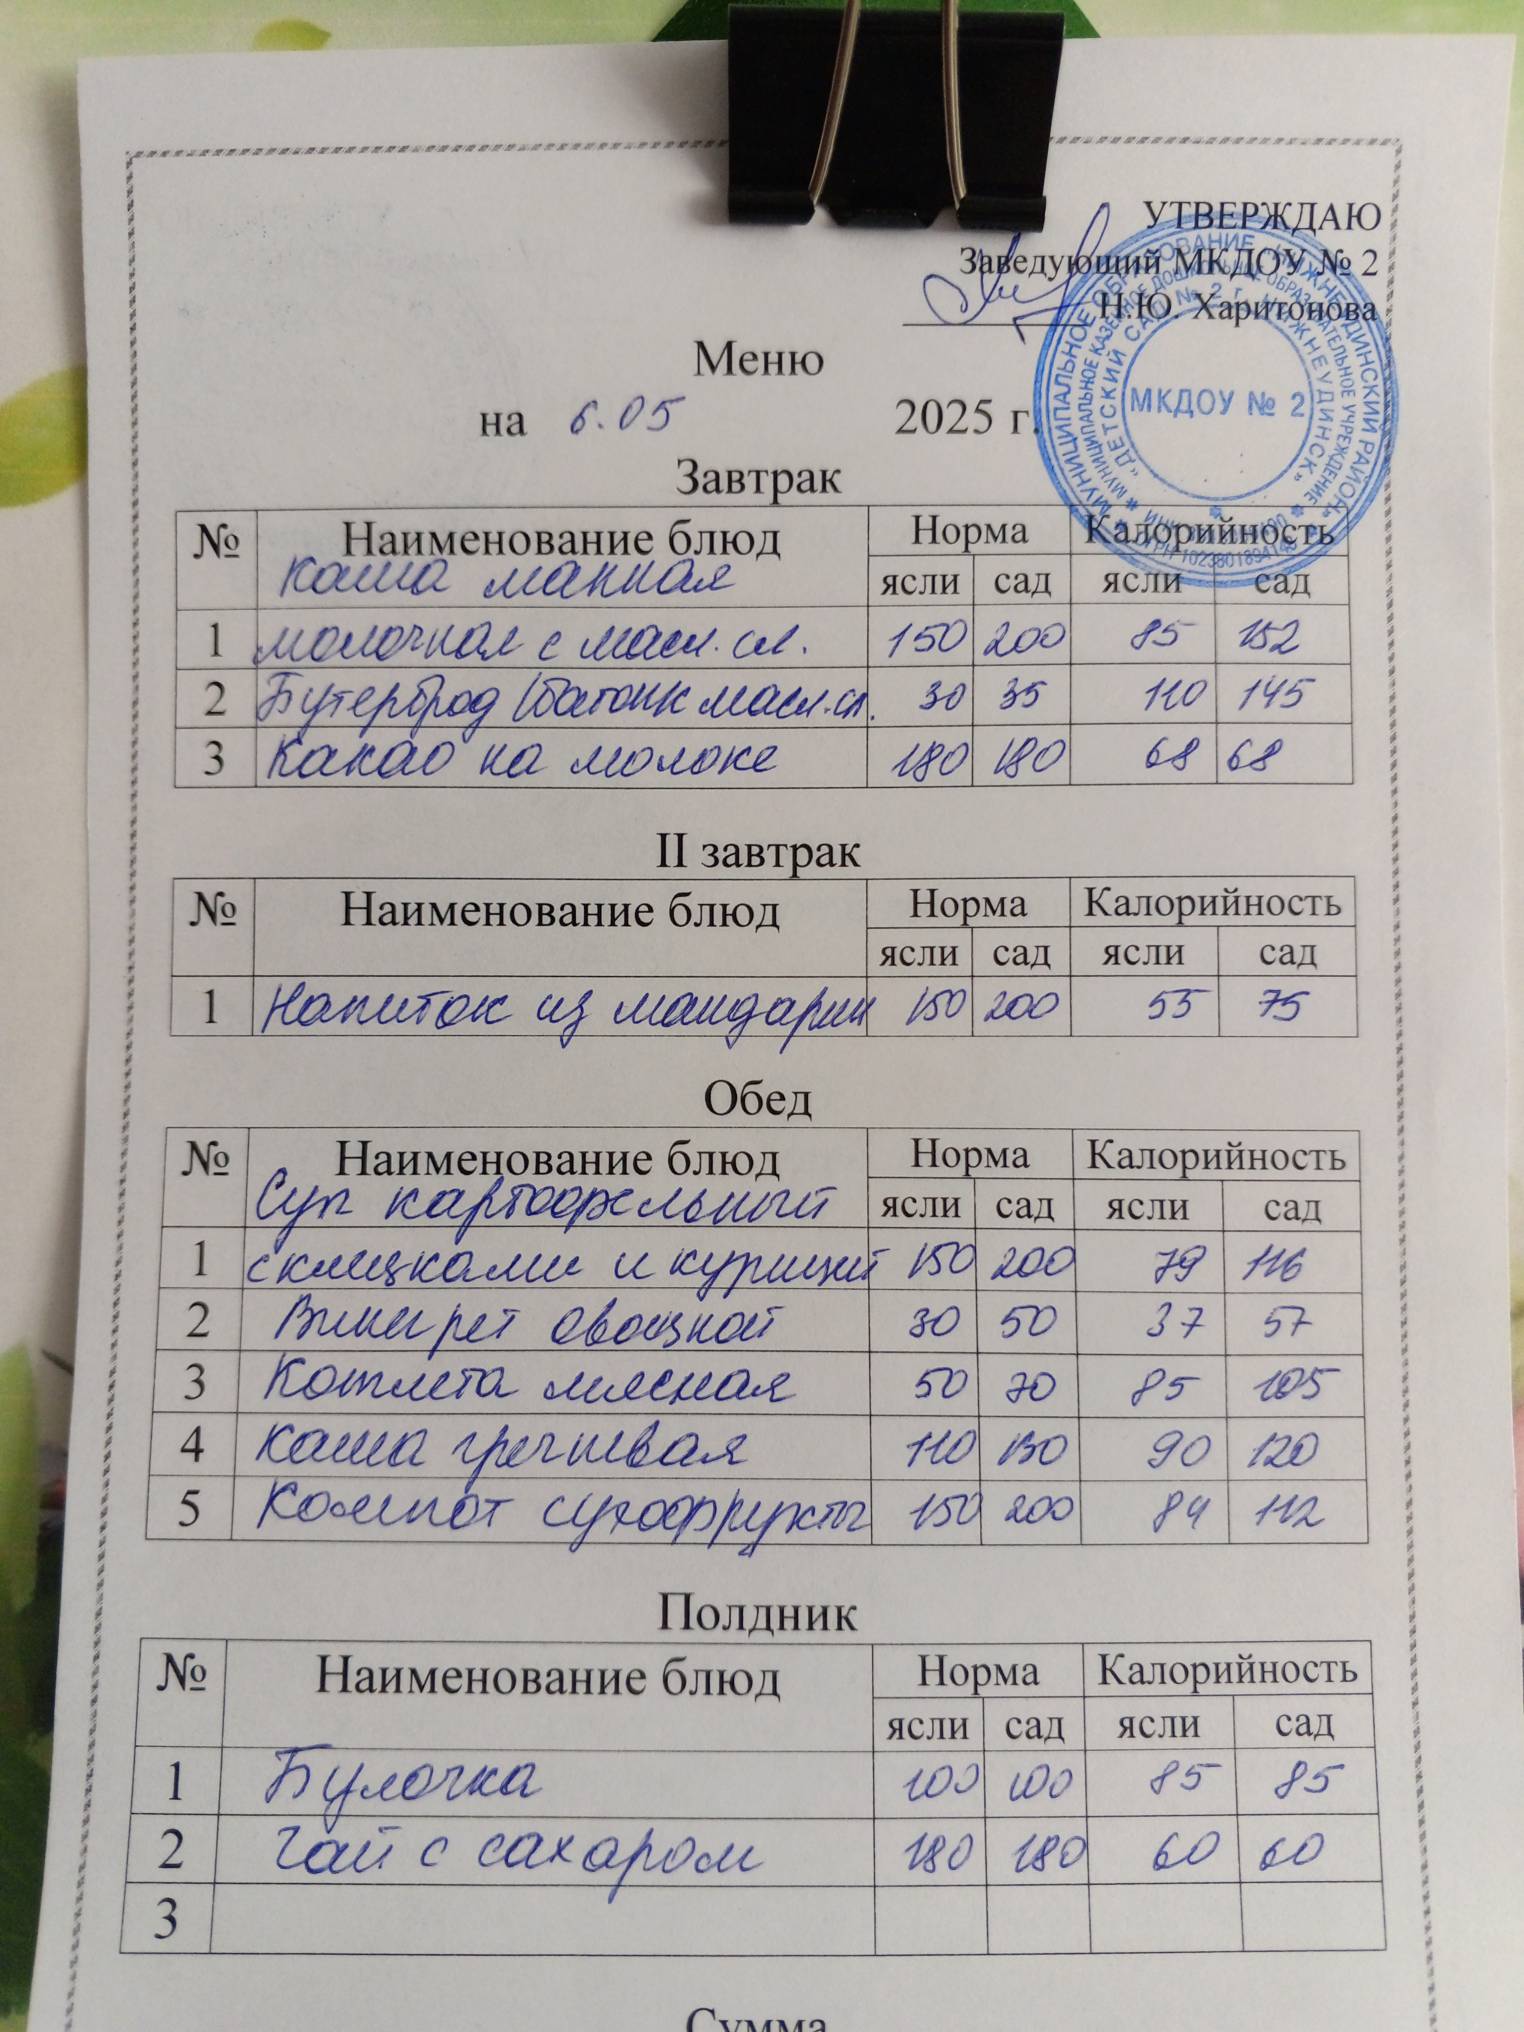 УТВЕРЖДАЮ
Заведующий МКДОУ № 2
Н.Ю. Харитонова
МУНИЦИПАЛЬНОЕ ОБРАЗОВАНИЕ «НИЖНЕУДИНСКИЙ РАЙОН»
МУНИЦИПАЛЬНОЕ КАЗЕННОЕ ДОШКОЛЬНОЕ ОБРАЗОВАТЕЛЬНОЕ УЧРЕЖДЕНИЕ
«ДЕТСКИЙ САД № 2 г. НИЖНЕУДИНСК»
МКДОУ № 2
Меню
на 6.05 2025 г.
Завтрак
№ Наименование блюд Норма Калорийность
ясли сад ясли сад
Каша манная
1 молочная с масл. сл. 150 200 85 152
2 Бутерброд (батон к масл. сл. 30 35 110 145
3 Какао на молоке 180 180 68 68
II завтрак
№ Наименование блюд Норма Калорийность
ясли сад ясли сад
1 Напиток из мандарин 150 200 55 75
Обед
№ Наименование блюд Норма Калорийность
ясли сад ясли сад
Суп картофельный
1 с клецками и курицей 150 200 79 116
2 Винегрет овощной 30 50 37 57
3 Котлета мясная 50 70 85 105
4 Каша гречневая 110 130 90 120
5 Компот сухофрукты 150 200 84 112
Полдник
№ Наименование блюд Норма Калорийность
ясли сад ясли сад
1 Булочка 100 100 85 85
2 Чай с сахаром 180 180 60 60
3
Сумма